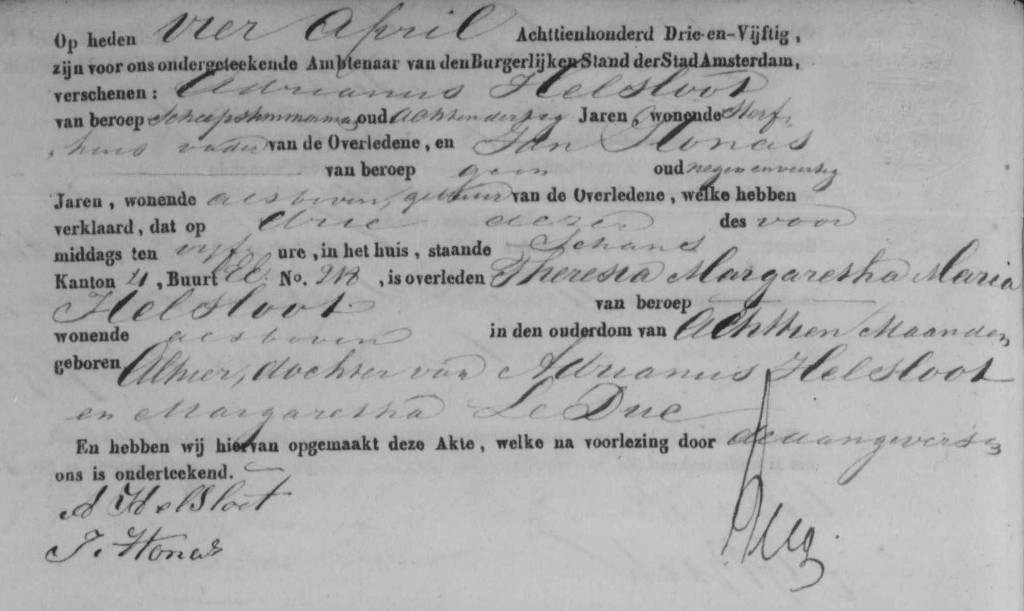 Op heden vier April Achttienhonderd Drie-en-Vijftig,
zijn voor ons ondergeteekende Ambtenaar van den Burgerlijken Stand der Stad Amsterdam,
verschenen: Adrianus Helsloot
van beroep Scheepstimmerman oud Achtendertig Jaren, wonende Sterf,
huis vader van de Overledene, en Jan Honas
van beroep geen oud negenenveertig
Jaren, wonende alsboven, gebuur van de Overledene, welke hebben
verklaard, dat op drie dezer des voor
middags ten vijf ure, in het huis, staande Schans
Kanton 4, Buurt No. 218, is overleden Theresia Margaretha Maria
Helsloot van beroep
wonende alsboven in den ouderdom van Achttien Maanden
geboren Alhier, dochter van Adrianus Helsloot
en Margaretha Le Duc
En hebben wij hiervan opgemaakt deze Akte, welke na voorlezing door de aangevers en
ons is onderteekend.
A Helsloot
J. Honas